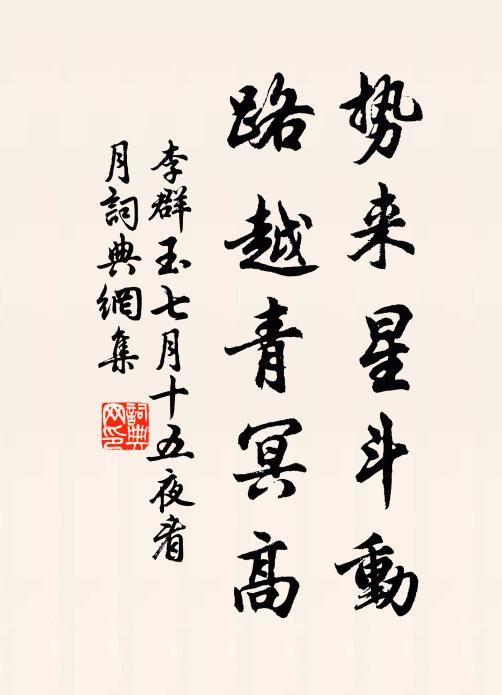 势来星斗動
路越青冥高
李群玉七月十五夜看
月詞典網集
詞典
网印